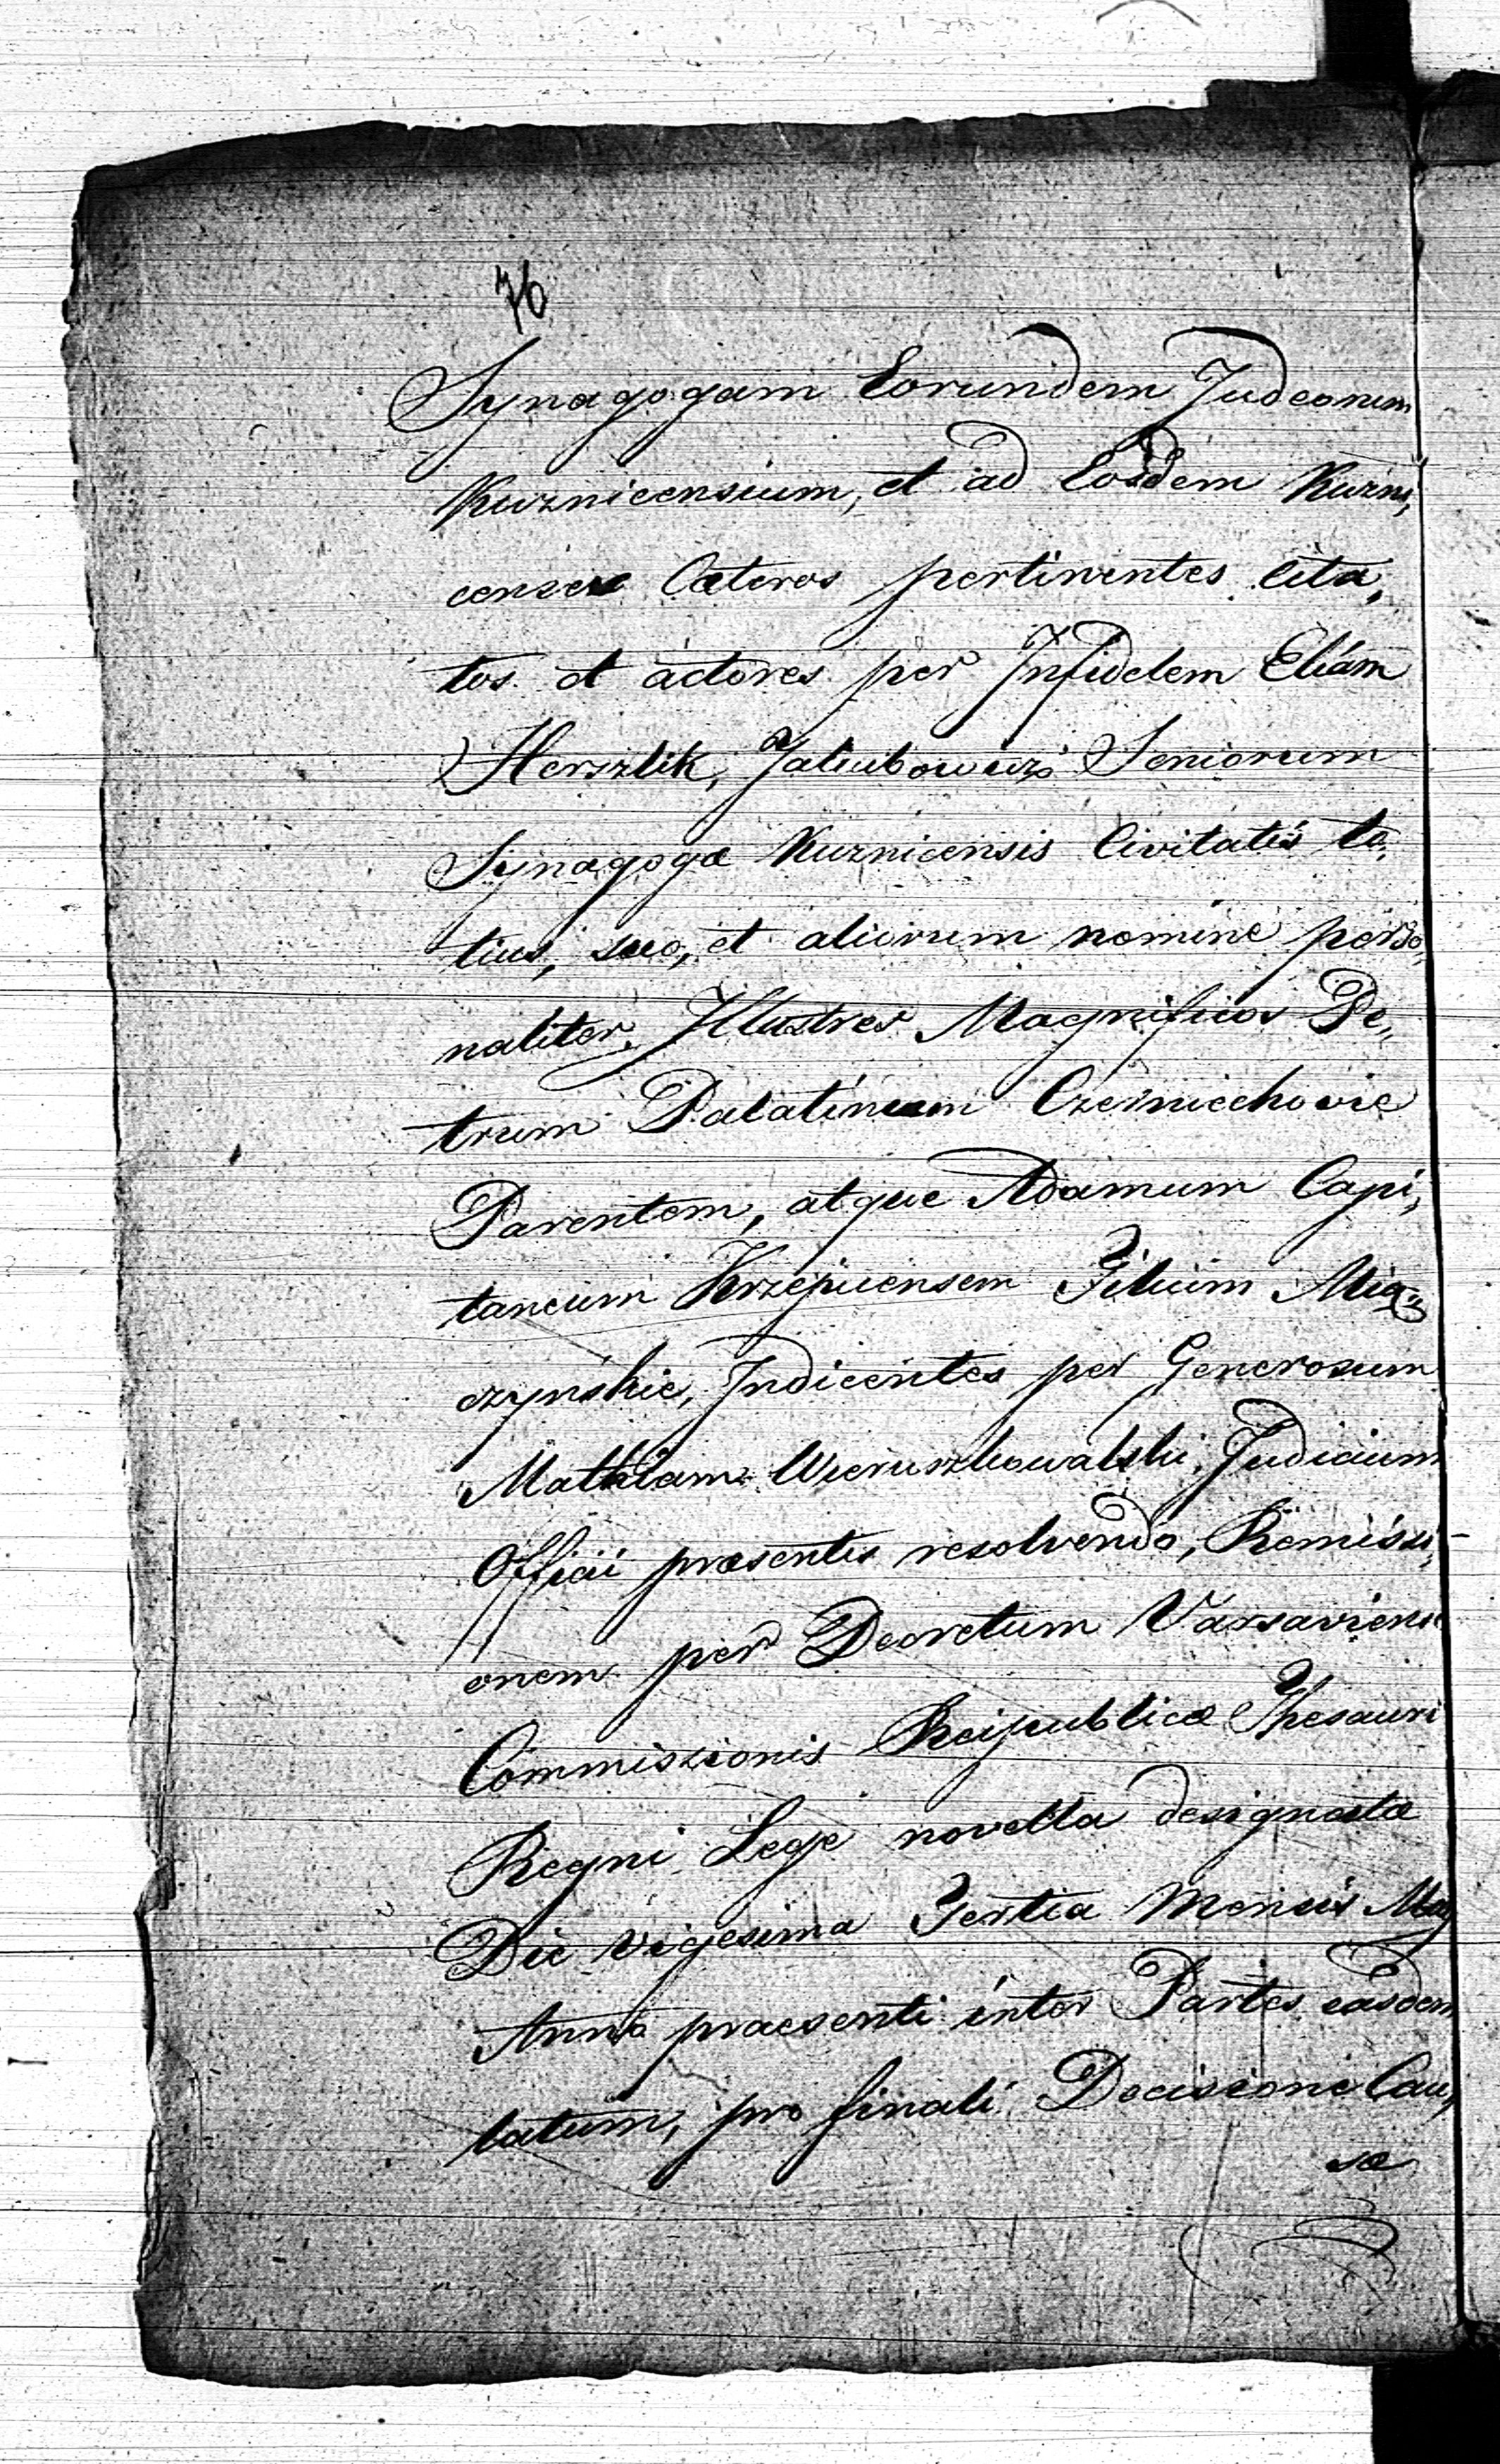 76
Synagogam Eorundem Judeorum
Kuznicensium, et ad Eosdem Kuzni,
censes Cæteros pertinentes Cita,
tos et actores per Infidelem Eliám
Herszlik, Jakubowicz Seniorum
Synagogæ Kuznicensis Civitatis to,
tius, suo, et aliorum nomine perso,
naliter, Illustres Magnificos Pe,
trum Palatinum Czerniechoviæ
Parentem, atque Adamum Capi,
taneum Krzepicensem Filium Mią,
czynskie, Indicentes per Generosum
Mathiam Wieruszkowalski, Judicium
Officii præsentis resolvendo, Remissi,
onem per Decretum Varsaviens
Commissionis Reipublicæ Thesauri
Regni Lege novella designatæ
Die vigesima Tertia Mensis Maj
Anno praesenti inter Partes easdem
latum, pro finali Decisione Cau,
sæ